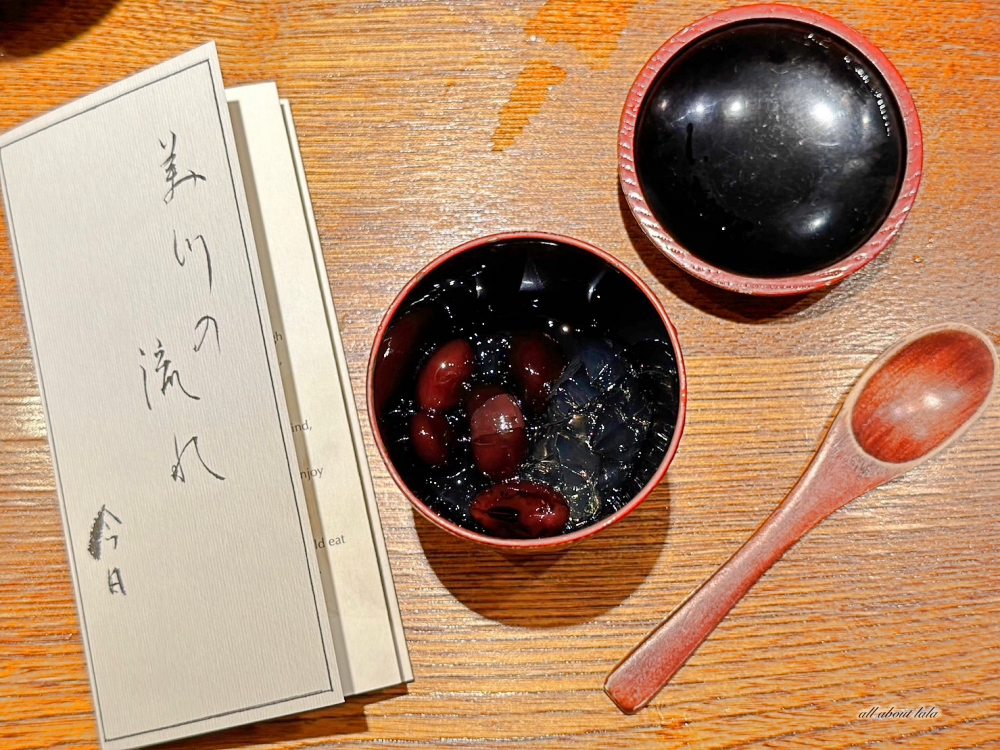 美川の流れ
今日
nd,
njoy
ld eat
all about lala